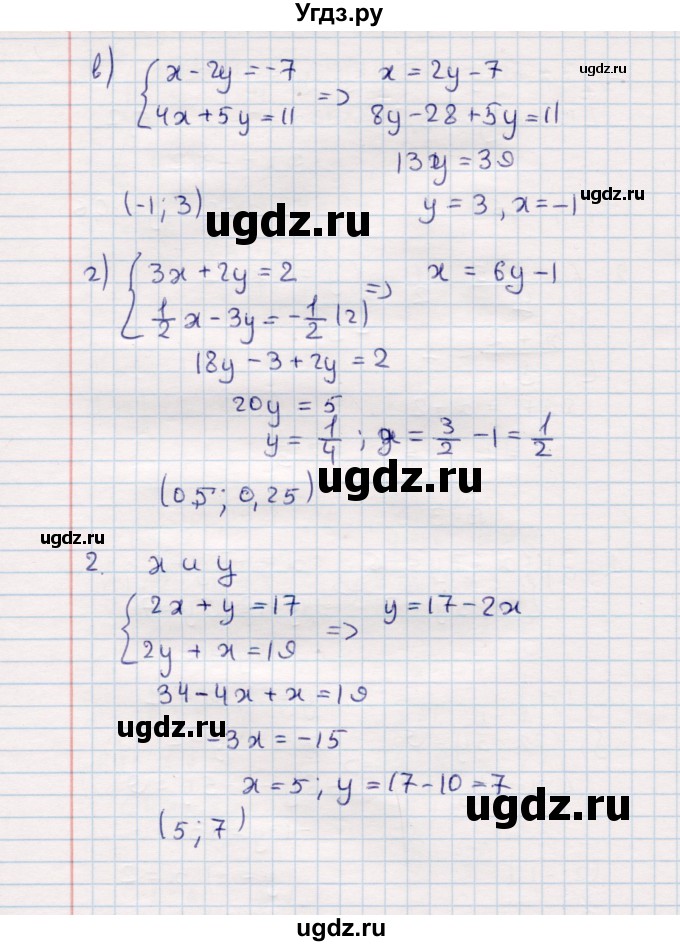 Угдз.ру
в) { x - 2y = -7 => x = 2y - 7
4x + 5y = 11 8y - 28 + 5y = 11
13y = 39
(-1; 3) y = 3, x = -1
г) { 3x + 2y = 2 => x = 6y - 1
1/2 x - 3y = -1/2 (2)
18y - 3 + 2y = 2
20y = 5
y = 1/4 ; x = 3/2 - 1 = 1/2
(0,5; 0,25)
2. x и y
{ 2x + y = 17 => y = 17 - 2x
2y + x = 19
34 - 4x + x = 19
-3x = -15
x = 5; y = 17 - 10 = 7
(5; 7)
ugdz.ru
ugdz.ru
ugdz.ru
ugdz.ru
ugdz.ru
ugdz.ru
ugdz.ru
ugdz.ru